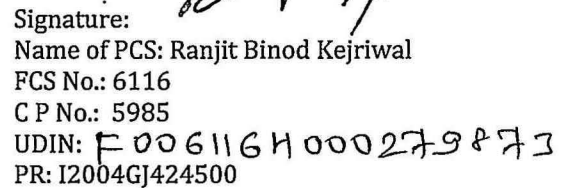 Signature:
Name of PCS: Ranjit Binod Kejriwal
FCS No.: 6116
C P No.: 5985
UDIN: F006116H000279873
PR: I2004GJ424500